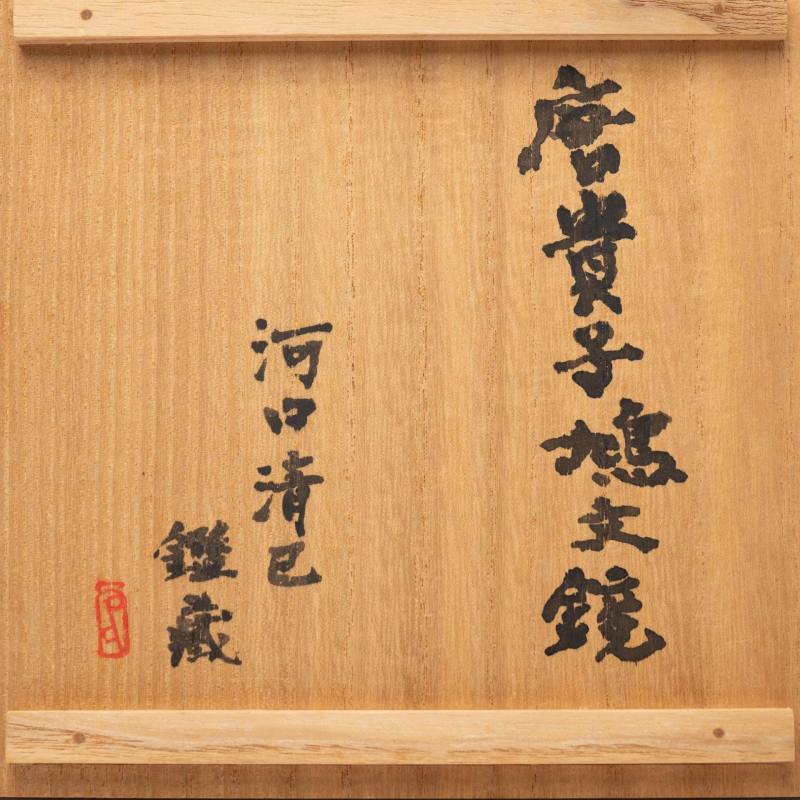 唐貴子鳩文鏡
河口清巳
鑑蔵